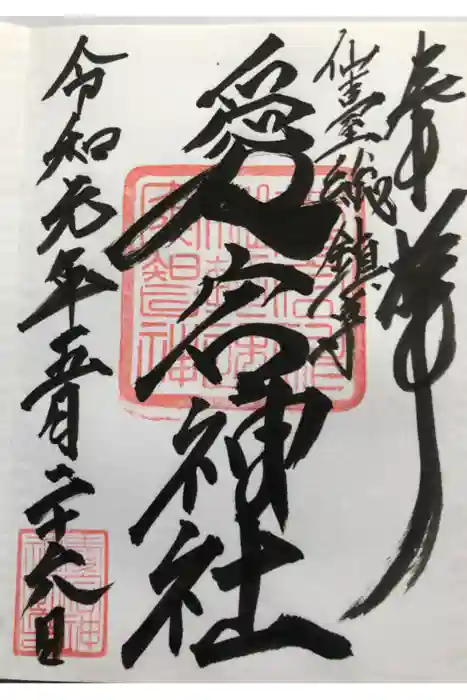 奉拝
仙臺総鎮守
愛宕神社
令和元年五月二十六日